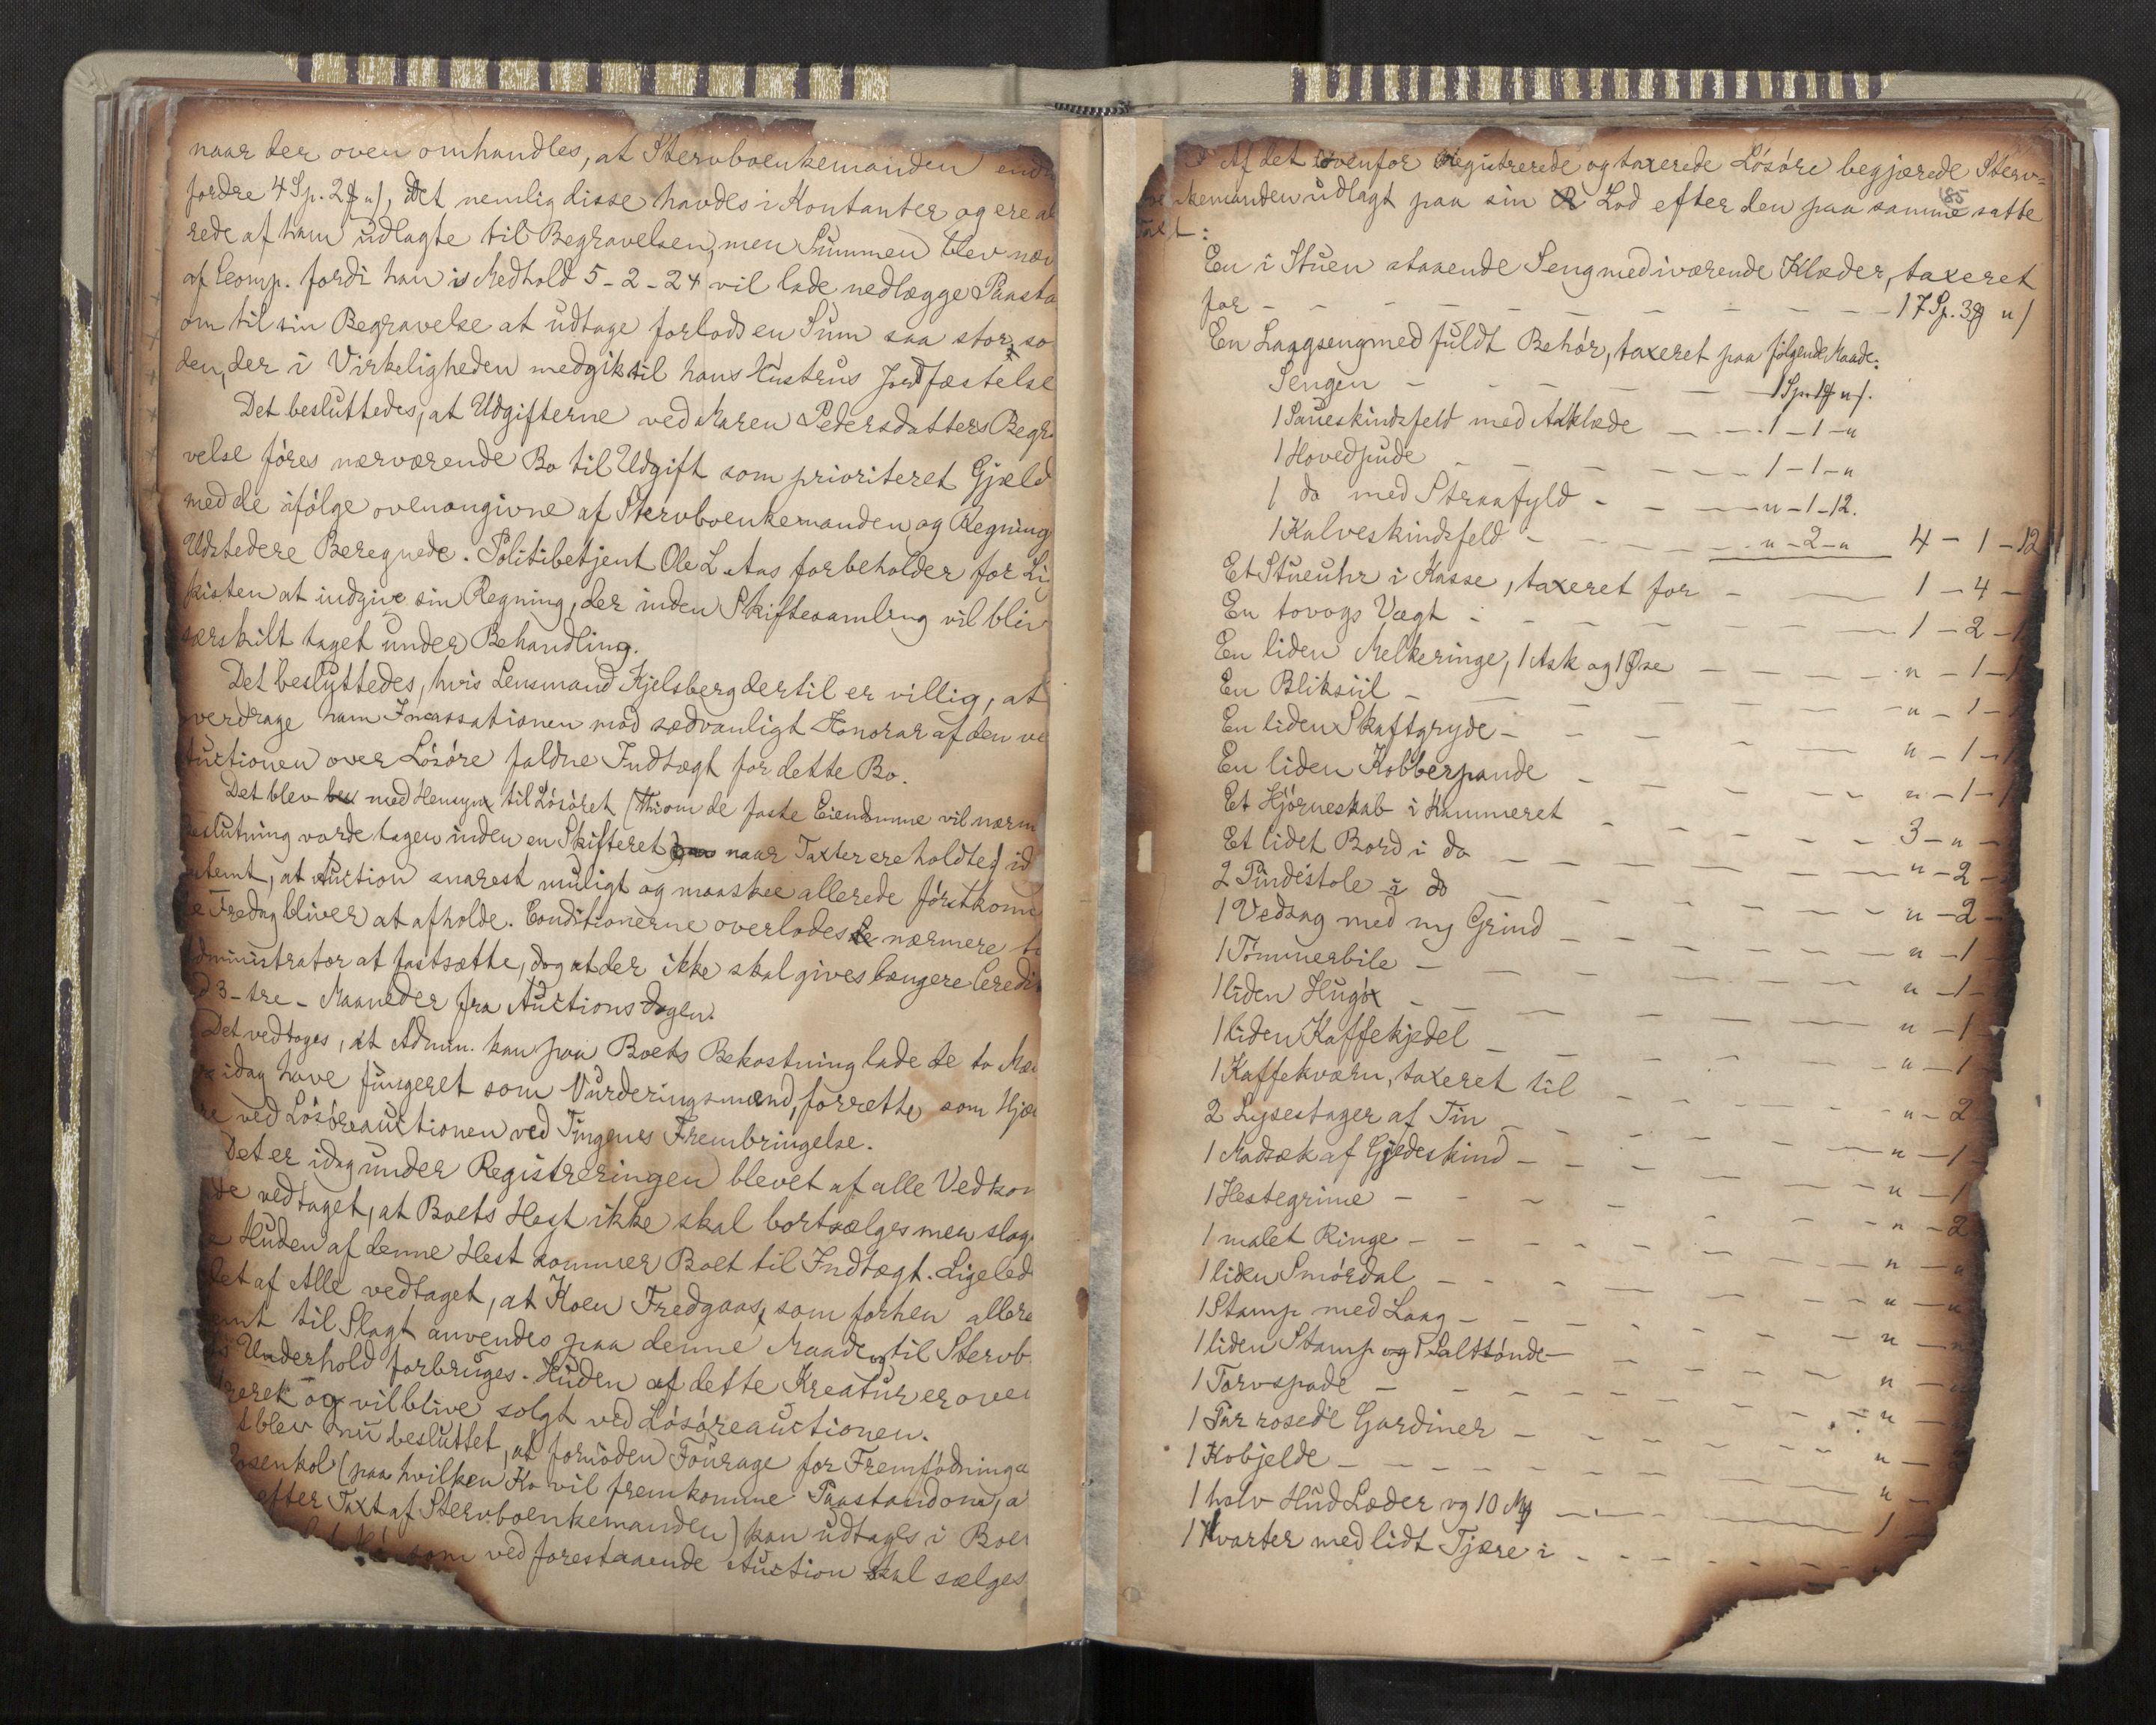 naar der oven omhandles, at Stervboenkemanden
fordre 4 Sp. 2 u), det nemlig disse havdes i Kontanter og ere
rede af ham udlagte til Begravelsen, men Summen blev
af Comp. fordi han i Medhold 5-2-24 vil lade nedlægge
om til sin Begravelse at udtage forlods en Sum saa stor,
den, der i Virkeligheden medgik til hans Hustrus Jordfæstelse
Det besluttedes, at Udgifterne ved Maren Pedersdatters Begra
velse føres nærværende Bo til Udgift som prioriteret Gjæld
med de ifølge ovenangivne af Stervboenkemanden og Regning
Udstedere Beregnede. Politibetjent Ole L. Aas forbeholder for
kisten at indgive sin Regning, der inden Skiftesamling vil bliv
særskilt taget under Behandling.
Det besluttedes, hvis Lensmand Kjelsberg dertil er villig, at
overdrage ham Incassationen mod sædvanligt Honorar af den
Auctionen over Løsøre faldne Indtægt for dette Bo.
Det blev med Hensyn til Løsøret (Thi om de faste Eiendomme vil
Beslutning vorde tagen inden en Skifteret naar Taxter ere holdte)
at Auction snarest muligt og maaskee allerede førstkom
Fredag bliver at afholde. Conditionerne overlodes nærmere
Administrator at fastsætte, dog at der ikke skal gives længere Credit
3 - tre - Maaneder fra Auctionsdagen.
Det vedtoges, at Admin. kan paa Boets Bekostning lade de to
idag have fungeret som Vurderingsmænd, forrette som
ved Løsøreauctionen ved Tingenes Frembringelse.
Det er idag under Registreringen blevet af alle Vedkom
vedtaget, at Boets Hest ikke skal bortsælges men
Huden af denne Hest kommer Boet til Indtægt. Ligeled
af Alle vedtaget, at Koen Fredgaas, som forhen
til Slagt anvendes paa denne Maade og til Stervb
Underhold forbruges. Huden af dette Kreatur er
og vil blive solgt ved Løsøreauctionen.
blev nu besluttet, at fornøden Fourage for Fremfødning
Rosenkol (paa hvilken Ko vil fremkomme Paastand om,
efter Taxt af Stervboenkemanden) kan udtages i
som ved forestaaende Auction skal sælges
Af det ovenfor registrerede og taxerede Løsøre begjærede Sterv=
185
boenkemanden udlagt paa sin Lod efter den paa samme satte
Taxt:
En i Stuen staaende Seng med iværende Klæder, taxeret
for - - - - - - 17 Sp. 3 u)
En Laagseng med fuldt Behør, taxeret paa følgende Maade:
Sengen - - - 1 Sp. 1 u).
1 Saueskindsfeld med Aaklæde - - 1 - 1 - u
1 Hovedpude - - - 1 - 1 - u
1 do med Straafyld - - - u - 1 - 12.
1 Kalveskindsfeld - - - u - 2 - u 4 - 1 - 12
Et Stueuhr i Kasse, taxeret for - - 1 - 4 -
En tovogs Vægt - - - 1 - 2 -
En liden Melkeringe, 1 Ask og 1 Øse - - - u - 1 -
En Bliksiil - - - u - 1 -
En liden Skaftgryde - - - u - 1 -
En liden Kobberpande - - - u - 1 -
Et Hjørneskab i Kammeret - - - 3 - u -
Et lidet Bord i do - - - u - 2 -
2 Pindestole i do - - - u - 2 -
1 Vedsag med ny Grind - - - u - 1 -
1 Tømmerbile - - - u - 1 -
1 liden Hugøx - - - u - 1 -
1 liden Kaffekjedel - - - u - 1
1 Kaffekværn, taxeret til - - - u - 2
2 Lysestager af Tin - - - u - 1 -
1 Madsæk af Gjedeskind - - - u - 1
1 Hestegrime - - - u - 2
1 malet Ringe - - - u - u
1 liden Smørdal - - - u - u
1 Stamp med Laag - - - u -
1 liden Stamp og 1 Salttønde - - - u -
1 Torvspade - - - u -
1 Par rosede Gardiner - - - u -
1 Kobjelde - - - u -
1 halv Hud Læder og 10 - - - 1 -
1 Kvarter med lidt Tjære i - - -